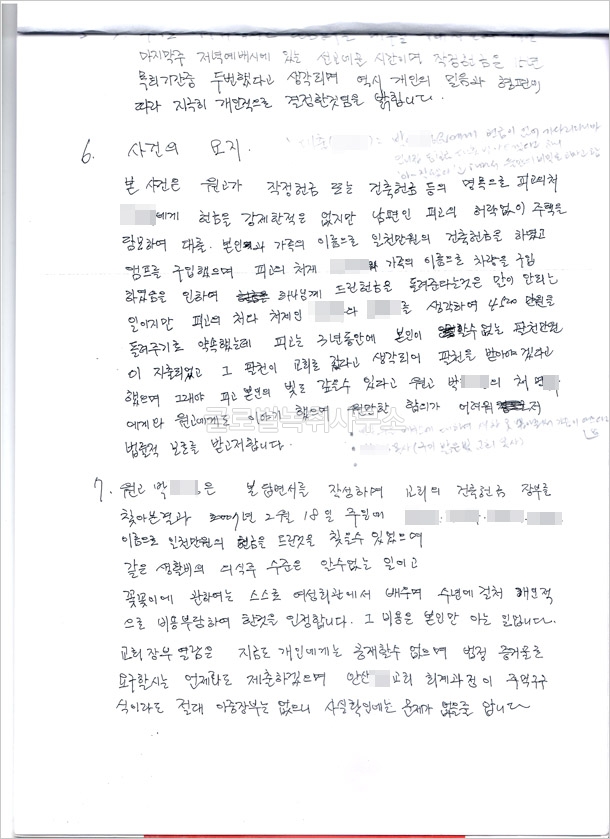 마지막주 저녁예배시에 있는 선교헌금 시간이며 작정헌금은 15년
목회기간중 두번했다고 생각되며 역시 개인의 믿음과 형편에
따라 지극히 개인적으로 결정한것임을 밝힙니다.
6. 사건의 요지.
본 사건은 원고가 작정헌금 또는 건축헌금 등의 명목으로 피고의처
에게 헌금을 강제한적은 없지만 남편인 피고의 허락없이 주택을
담보하여 대출. 본인과 가족의 이름으로 일천만원의 건축헌금을 하였고
앰프를 구입했으며 피고의 처제 가족의 이름으로 차량을 구입
하였음을 인하여 하나님께 드린헌금을 돌려준다는것은 말이 안되는
일이지만 피고의 처와 처제인 와 을 생각하여 4500만원을
돌려주기로 약속했는데 피고는 3년동안에 본인이 알수없는 팔천만원
이 지출되었고 그 팔천이 교회로 갔다고 생각되어 팔천을 받아야겠다고
했으며 그래야 피고 본인의 빚도 갚을수 있다고 원고 박 의 처
에게와 원고에게도 이야기 했으며 원만한 합의가 어려워
법률적 보호를 받고저합니다.
글로벌녹취사무소
7. 원고 박 은 본 답변서를 작성하며 교회의 건축헌금 장부를
찾아본결과 년 2월 18일 주일에
이름으로 일천만원의 헌금을 드린것을 찾을수 있었으며
같은 생활비의 의식주 수준은 알수없는 일이고
꽃꽂이에 관하여는 스스로 여성회관에서 배우며 수년에 걸쳐 개인적
으로 비용부담하여 한것을 인정합니다. 그 비용은 본인만 아는 일입니다.
교회장부 열람은 지금도 개인에게는 공개할수 없으며 법정 증거물로
요구할시는 언제라도 제출하겠으며 안산 교회 회계과정이 주먹구구
식이라도 절대 이중장부는 없으니 사실확인에는 문제가 없을줄 압니다